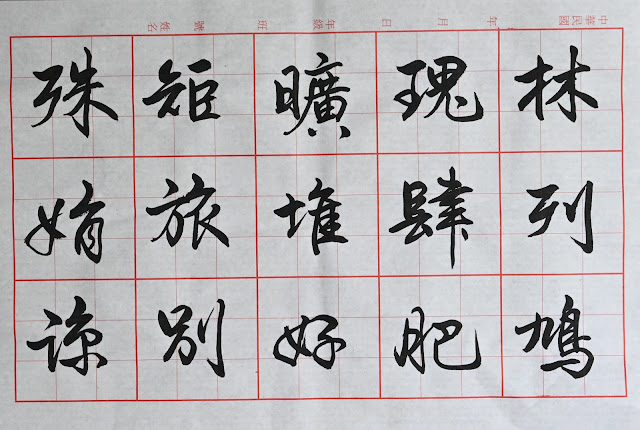 中華民國 年 月 日 年級 班 號 姓名
林列鳩
瑰肆肥
曠堆好
矩旅別
殊娟諒